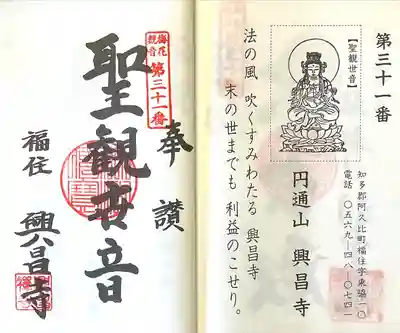 第三十一番
【聖観世音】
知多郡阿久比町福住字東脇一〇
電話 〇五六九―四八―〇七四一
円通山 興昌寺
法の風 吹くすみわたる 興昌寺
末の世までも 利益のこせり。
奉讃
梅花観音
第三十一番
聖観世音
福住 興昌寺